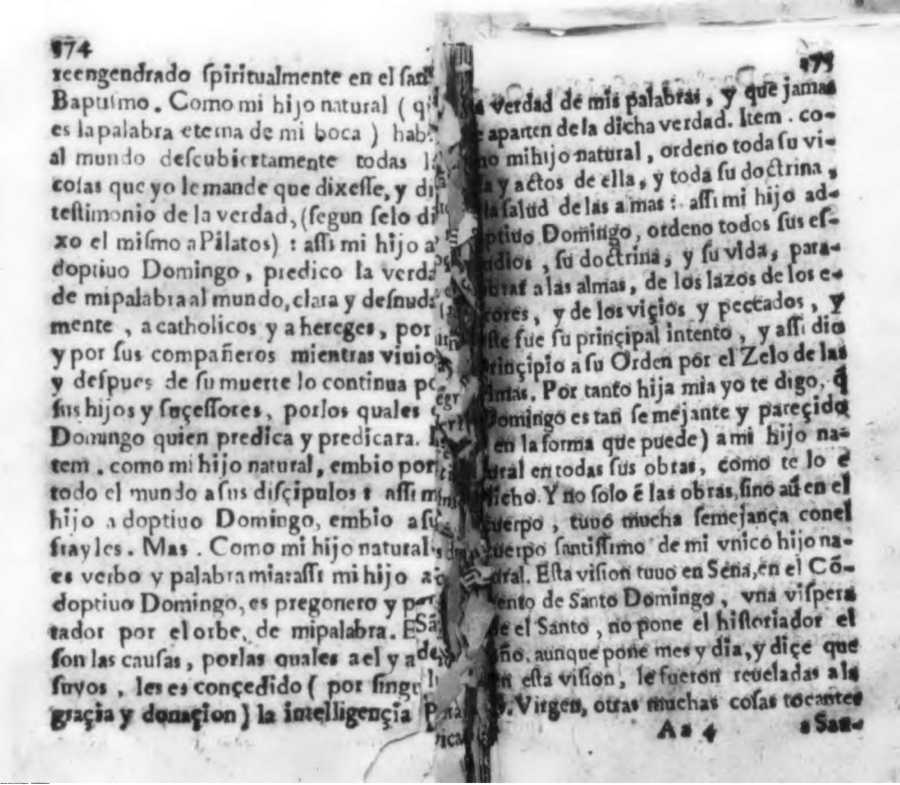 174
reengendrado spiritualmente en el san
Baptismo. Como mi hijo natural (q
es la palabra eterna de mi boca) hab
al mundo descubiertamente todas l
cosas que yo le mande que dixesse, y di
testimonio de la verdad, (segun selo di
xo el mismo a Pilatos): assi mi hijo a
doptiuo Domingo, predico la verda
de mipalabra al mundo, clara y desnuda
mente, a catholicos y a hereges, por
y por sus compañeros mientras viuio
y despues de su muerte lo continua po
sus hijos y suçessores, porlos quales
Domingo quien predica y predicara. I
tem. como mi hijo natural, embio por
todo el mundo a sus disçipulos: assi m
hijo adoptiuo Domingo, embio a su
frayles. Mas. Como mi hijo natural
es verbo y palabra mia: assi mi hijo a
doptiuo Domingo, es pregonero y
tador por el orbe, de mipalabra.
son las causas, porlas quales a el y a
suyos, les es conçedido (por singu
graçia y donaçion) la intelligençia
175
verdad de mis palabras, y que jamas
aparten de la dicha verdad. Item. co-
mo mihijo natural, ordeno toda su vi-
a y actos de ella, y toda su doctrina,
la salud de las amas: assi mi hijo ad-
ptiuo Domingo, ordeno todos sus es-
udios, su doctrina, y su vida, para
a las almas, de los lazos de los e-
rores, y de los viçios y peccados, y
ste fue su prinçipal intento, y assi dio
rinçipio a su Orden por el Zelo de las
lmas. Por tanto hija mia yo te digo, q̃
Domingo es tan semejante y pareçido
en la forma que puede) a mi hijo na-
ural en todas sus obras, como te lo e
dicho. Y no solo ẽ las obras, sino aũ en el
cuerpo, tuuo mucha semejança conel
cuerpo santissimo de mi vnico hijo na-
tural. Esta vision tuuo en Sena, en el Cõ-
ento de Santo Domingo, vna vispera
de el Santo, no pone el historiador el
año. aunque pone mes y dia, y diçe que
en esta vision, le fueron reueladas a la
S. Virgen, otras muchas cosas tocantes
Aa 4
a San-